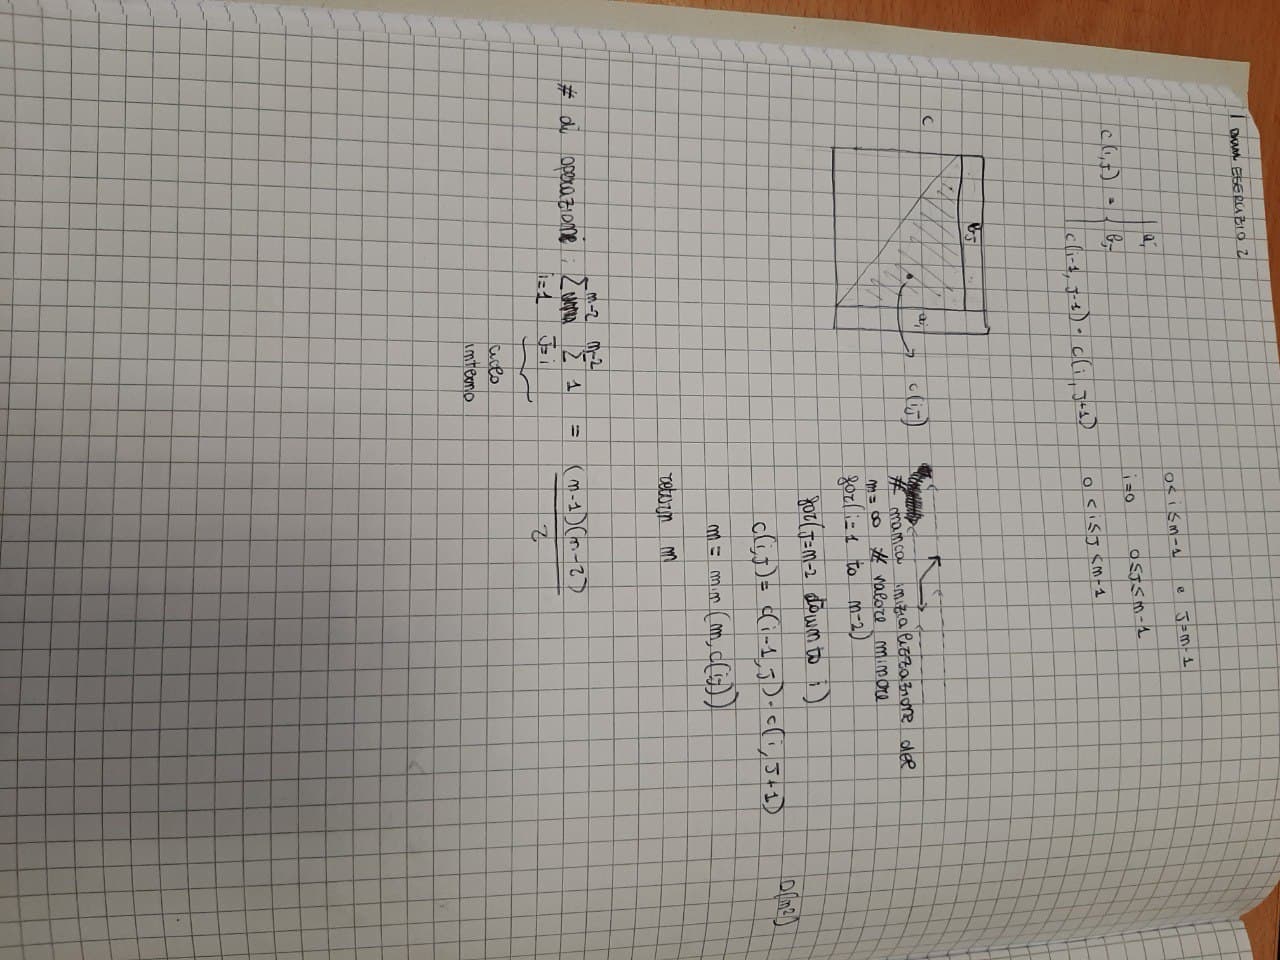 ESERCIZIO 2
c(i,J) =
ai 0 < i ≤ m-1 e J=m-1
bJ i=0 0≤J≤m-1
c(i-1, J-1) · c(i, J+1) 0 < i ≤ J < m-1
bJ
c
ai
c(i,J)
# manca inizializzazione
m = ∞ # valore minore
for(i=1 to m-2)
for(J=m-2 down to i)
c(i,J) = c(i-1, J) · c(i, J+1)
O(m²)
m = min(m, c(i,J))
return m
# di operazioni: Σ_{i=1}^{m-2} Σ_{J=i}^{m-2} 1 = (m-1)(m-2) / 2
ciclo
interno